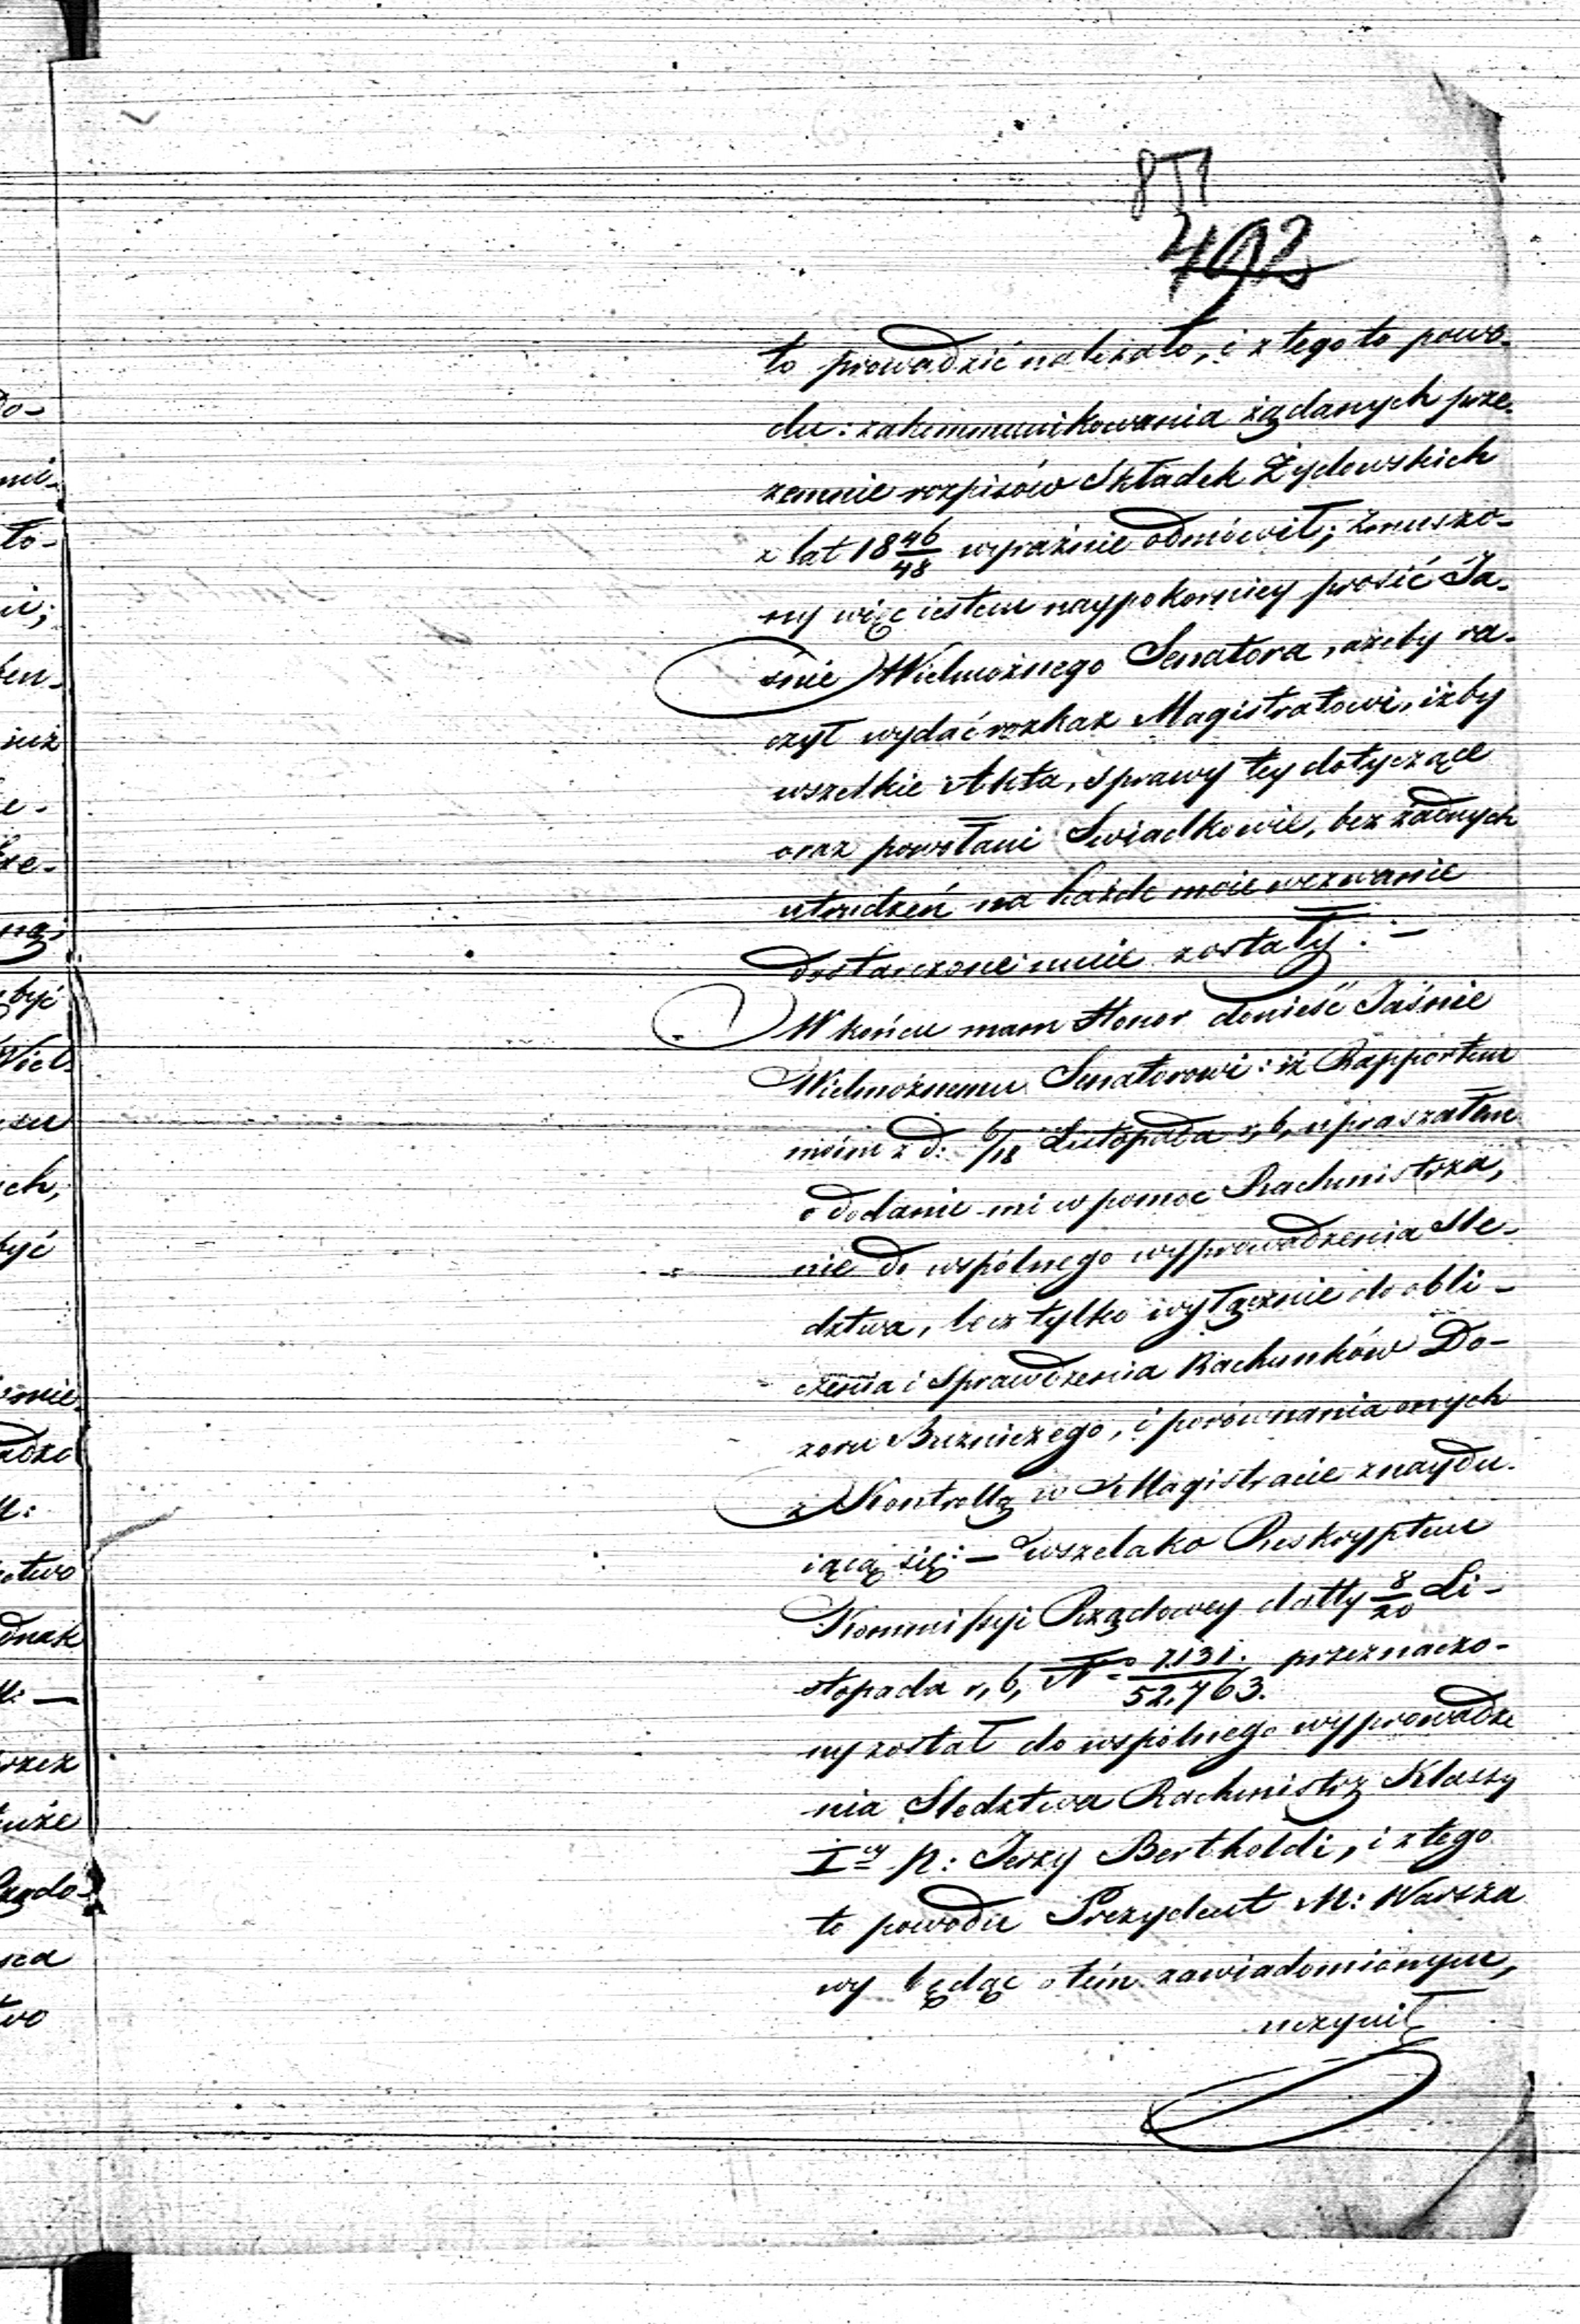 492
to prowadzić należało, i z tego to powo-
du: zakommunikowania żądanych prze-
zemnie rozpisów Składek Żydowskich
z lat 18 46/48 wyraźnie odmówił; zmuszo-
ny więc iestem naypokorniey prosić Ja-
śnie Wielmożnego Senatora, ażeby ra-
czył wydać rozkaz Magistratowi, iżby
wszelkie Akta, sprawy tey dotyczące
oraz powołani Swiadkowie, bez żadnych
utrudzeń na każde moie wezwanie
dostarczone mnie zostały. –
W końcu mam Honor donieść Jaśnie
Wielmożnemu Senatorowi: iż Rapportem
moim z d: 6/18 Listopada r, b, upraszałem
o dodanie mi w pomoc Rachmistrza,
nie do wspólnego wyprowadzenia Sle-
dztwa, lecz tylko wyłącznie do obli-
czenia i sprawdzenia Rachunków Do-
zoru Buzniczego, i porównania onych
z Kontrollą w Magistracie znaydu-
iącą się: – wszelako Reskryptem
Kommissyi Rządowey datty 8/20 Li-
stopada r, b, No 7.131./52.763. przeznaczo-
ny został do wspólnego wyprowadze
nia Sledztwa Rachmistrz Klassy
Iey p: Jerzy Bertholdi, i z tego
to powodu Prezydent M: Warsza
wy będąc o tém zawiadomionym,
uczynił